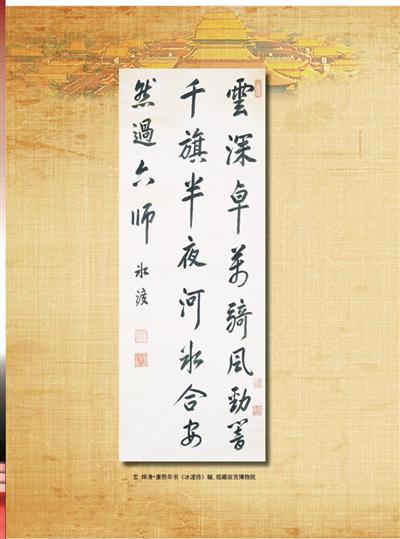 雲深卓萬騎風勁響
千旗半夜河氷合安
然過六師
氷渡
玄 烨清•康熙年书《冰渡诗》轴,现藏故宫博物院